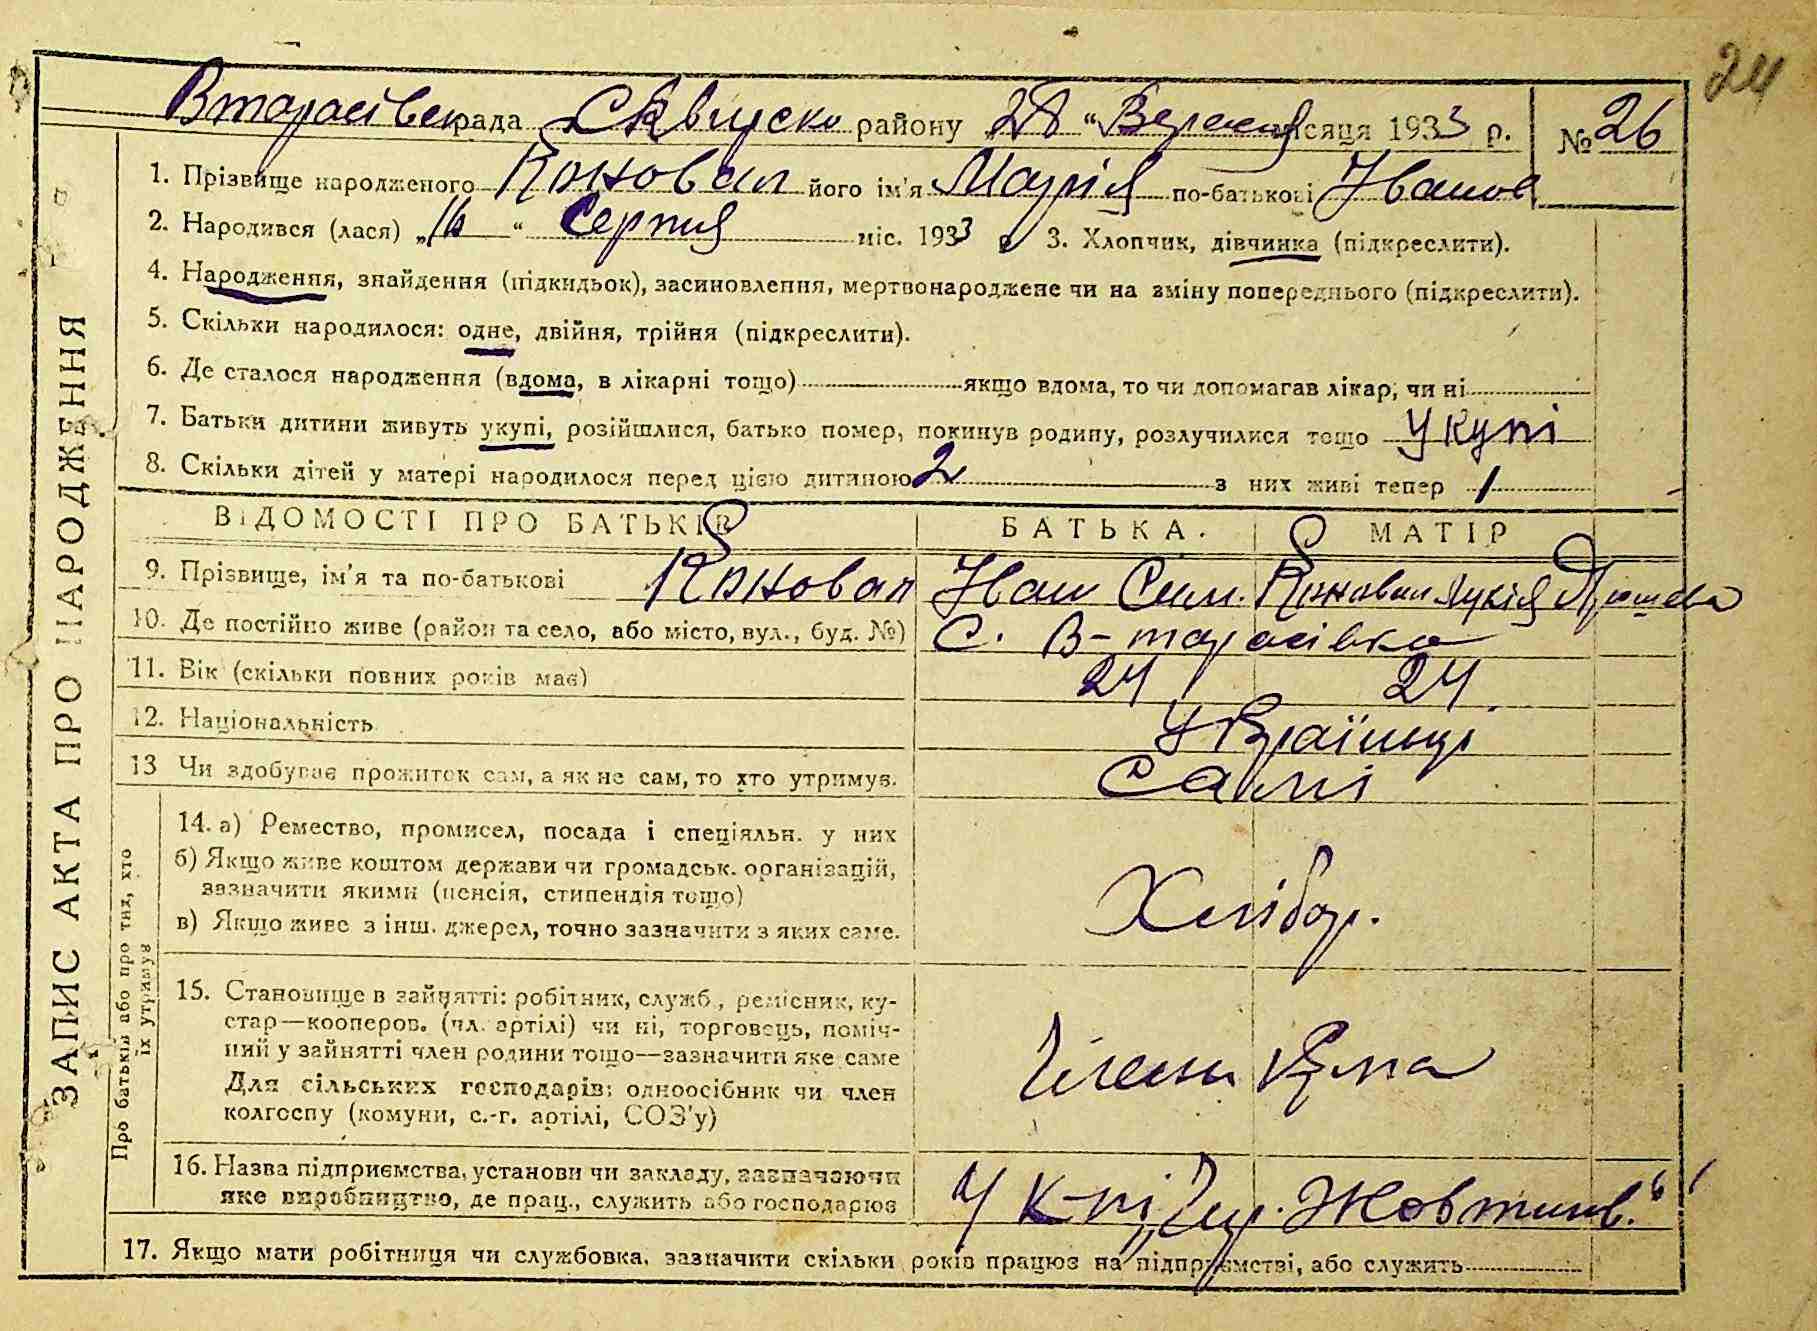 24
Втарасівск рада Сквирско району 28 „ Вересня місяця 1933 р. № 26
1. Прізвище народженого Коновал його ім'я Марія по-батькові Іванов
2. Народився (лася) „16 “ Серпня міс. 1933 р 3. Хлопчик, дівчинка (підкреслити).
4. Народження, знайдення (підкидьок), засиновлення, мертвонароджене чи на зміну попереднього (підкреслити).
5. Скільки народилося: одне, двійня, трійня (підкреслити).
6. Де сталося народження (вдома, в лікарні тощо) якщо вдома, то чи допомагав лікар, чи ні
7. Батьки дитини живуть укупі, розійшлися, батько помер, покинув родину, розлучилися тощо Укупі
8. Скільки дітей у матері народилося перед цією дитиною 2 з них живі тепер 1
ЗАПИС АКТА ПРО НАРОДЖЕННЯ
ВІДОМОСТІ ПРО БАТЬКІВ БАТЬКА. МАТІР
9. Прізвище, ім'я та по-батькові Коновал Іван Сим. Коновал Лукія
10. Де постійно живе (район та село, або місто, вул., буд. №) С. В-тарасівка
11. Вік (скільки повних років має) 24 24
12. Національність Українці
13 Чи здобуває прожиток сам, а як не сам, то хто утримує. Самі
Про батьків або про тих, хто
їх утримує
14. а) Ремество, промисел, посада і спеціяльн. у них
б) Якщо живе коштом держави чи громадськ. організацій,
зазначити якими (пенсія, стипендія тощо)
в) Якщо живе з інш. джерел, точно зазначити з яких саме.
Хлібор.
15. Становище в зайнятті: робітник, служб., ремісник, ку-
стар—кооперов. (чл. артілі) чи ні, торговець, поміч-
ний у зайнятті член родини тощо—зазначити яке саме
Для сільських господарів: одноосібник чи член
колгоспу (комуни, с.-г. артілі, СОЗ'у)
Члени
16. Назва підприємства, установи чи закладу, зазначаючи
яке виробництво, де прац., служить або господарює
У к-пі „Чер. Жовтнів.“
17. Якщо мати робітниця чи службовка, зазначити скільки років працює на підприємстві, або служить